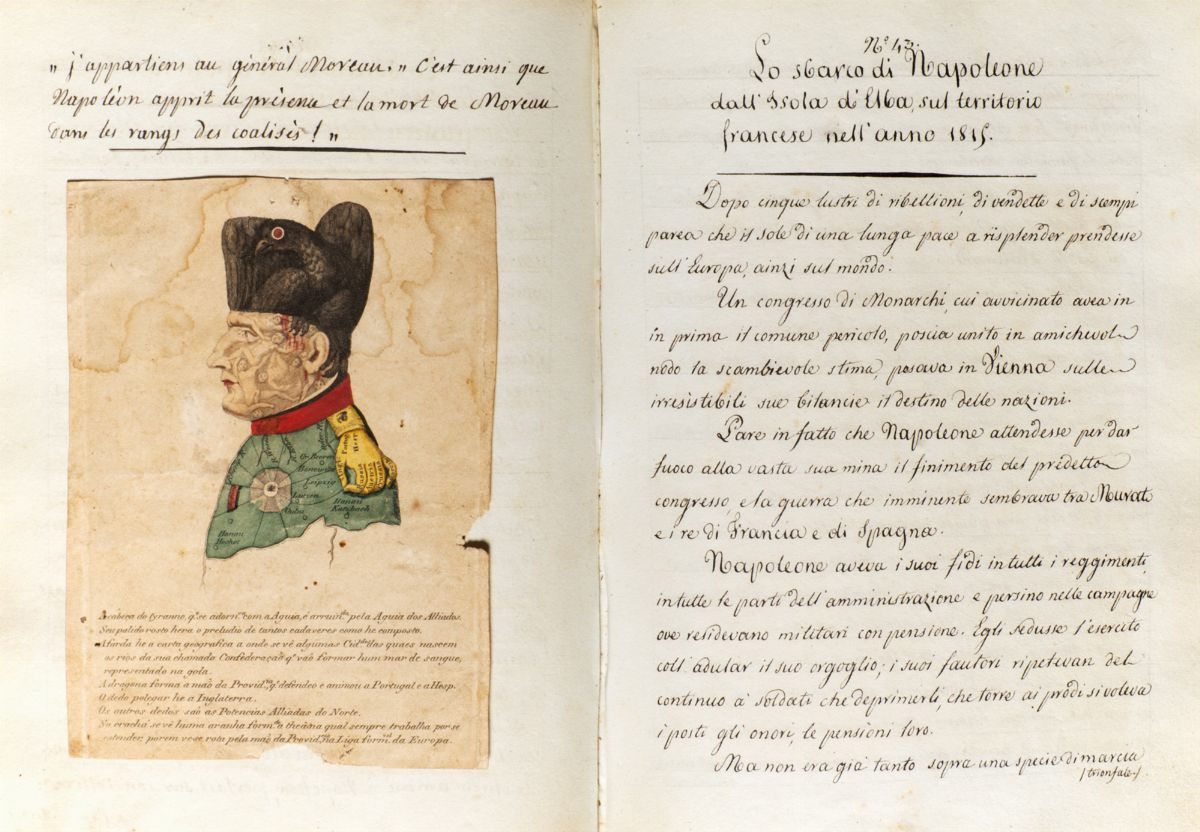 „ j'appartiens au général Moreau. „ C'est ainsi que
Napoléon apprit la présence et la mort de Moreau
dans les rangs des coalisés! „
Gr. Beeren
Dennewitz
Leipzig
Lutzen
Culm
Hanau
Katzbach
Hanau
Hochst
A cabeça do tyranno, q.e se adorn.va com a Aguia, é arruin.da pela Aguia dos Alliados.
Seu palido rosto hera o preludio de tantos cadaveres como he composto.
A farda he a carta geografica a onde se vê algumas Cid.des das quaes nascem
os rios da sua chamada Confederaçaõ q.e vaõ formar hum mar de sangue,
representado na gola.
A dragona forma a maõ da Provid.ca q.e defendeo e animou a Portugal e a Hesp.
O dedo polegar he a Inglaterra.
Os outros dedos saõ as Potencias Alliadas do Norte.
No crachá se vê huma aranha form.do a thea na qual sempre trabalha por se
estender, porem vo-se rota pela maõ da Provid.ca na Liga form.da da Europa.
N.o 43.
Lo sbarco di Napoleone
dall'Isola d'Elba, sul territorio
francese nell'anno 1815.
Dopo cinque lustri di ribellioni, di vendette e di scempi
parea che il sole di una lunga pace a risplender prendesse
sull'Europa, ainzi sul mondo.
Un congresso di Monarchi, cui avvicinato avea in
in prima il comune pericolo, poscia unito in amichevol
nodo la scambievole stima, posava in Vienna sulle
irresistibili sue bilancie il destino delle nazioni.
Pare in fatto che Napoleone attendesse per dar
fuoco alla vasta sua mina il finimento del predetto
congresso, e la guerra che imminente sembrava tra Murat
e i re di Francia e di Spagna.
Napoleone aveva i suoi fidi in tutti i reggimenti,
in tutte le parti dell'amministrazione e persino nelle campagne
ove residevano militari con pensione. Egli sedusse l'esercito
coll'adular il suo orgoglio, i suoi fautori ripetevan del
continuo a' soldati che deprimerli, che torre ai prodi si voleva
i posti gli onori, le pensioni loro.
Ma non era gia tanto sopra una specie di marcia
/trionfale/